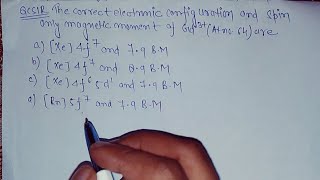 QCSIR The correct electronic configuration and spin
only magnetic moment of Gd³⁺ (At no. 64) are
a) [Xe] 4f⁷ and 7.9 B.M
b) [Xe] 4f⁷ and 8.9 B.M
c) [Xe] 4f⁶ 5d¹ and 7.9 B.M
d) [Rn] 5f⁷ and 7.9 B.M